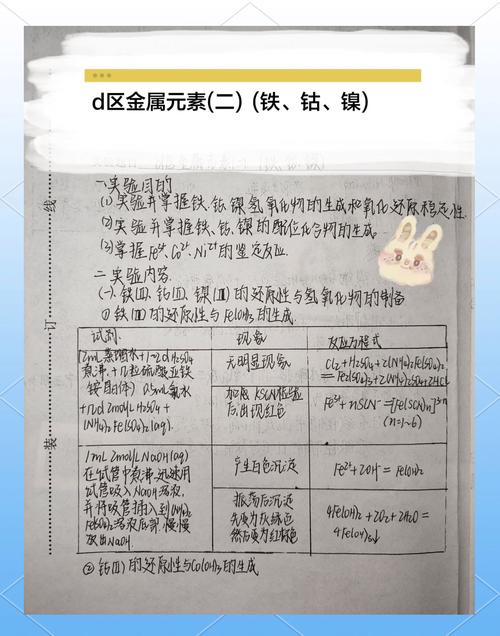 d区金属元素(二) (铁、钴、镍)
一.实验目的
(1)实验并掌握铁、钴、镍氢氧化物的生成和氧化还原稳定性.
(2)实验并掌握铁、钴、镍的配位化合物的生成.
(3)掌握Fe³⁺、Co²⁺、Ni²⁺的鉴定反应.
二.实验内容.
(一).铁(Ⅱ)、钴(Ⅱ)、镍(Ⅱ)的还原性与氢氧化物的制备
① 铁(Ⅱ)的还原性与Fe(OH)₂的生成.
试剂
现象
反应方程式
2mL蒸馏水+1~2d H₂SO₄
煮沸,+几粒硫酸亚铁
铵(固体) 0.5mL氯水
+几d 2mol/L H₂SO₄+
(NH₄)₂Fe(SO₄)₂(aq).
无明显现象
Cl₂+H₂SO₄+2(NH₄)₂Fe(SO₄)₂
=Fe₂(SO₄)₃+2(NH₄)₂SO₄+2HCl
加饱KSCN检验
后出现红色
Fe³⁺+nSCN⁻=[Fe(SCN)n]³⁻ⁿ
(n=1~6)
1mL 2mol/L NaOH(aq)
在试管中煮沸.迅速用
试管吸入NaOH溶液,
并将吸管插入到(NH₄)₂
Fe(SO₄)₂溶液底部,慢慢
放出NaOH.
产生白色沉淀
Fe²⁺+2OH⁻=Fe(OH)₂
振荡后沉淀
先变为灰绿色
然后变为红棕色
4Fe(OH)₂+2O₂+2H₂O=
4Fe(OH)₃↓
② 钴(Ⅱ)的还原性与Co(OH)₂的生成
线
订
装